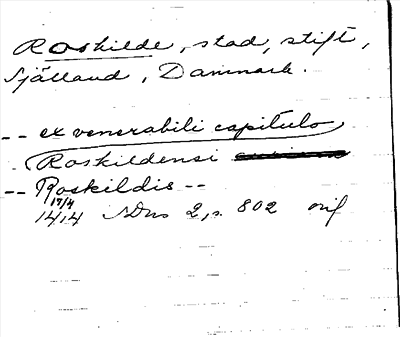 Roskilde, stad, stift,
Själland, Danmark.
-- ex venerabili capitulo
Roskildensi
-- Roskildis --
17/4
1414 SDns 2, s. 802 orig